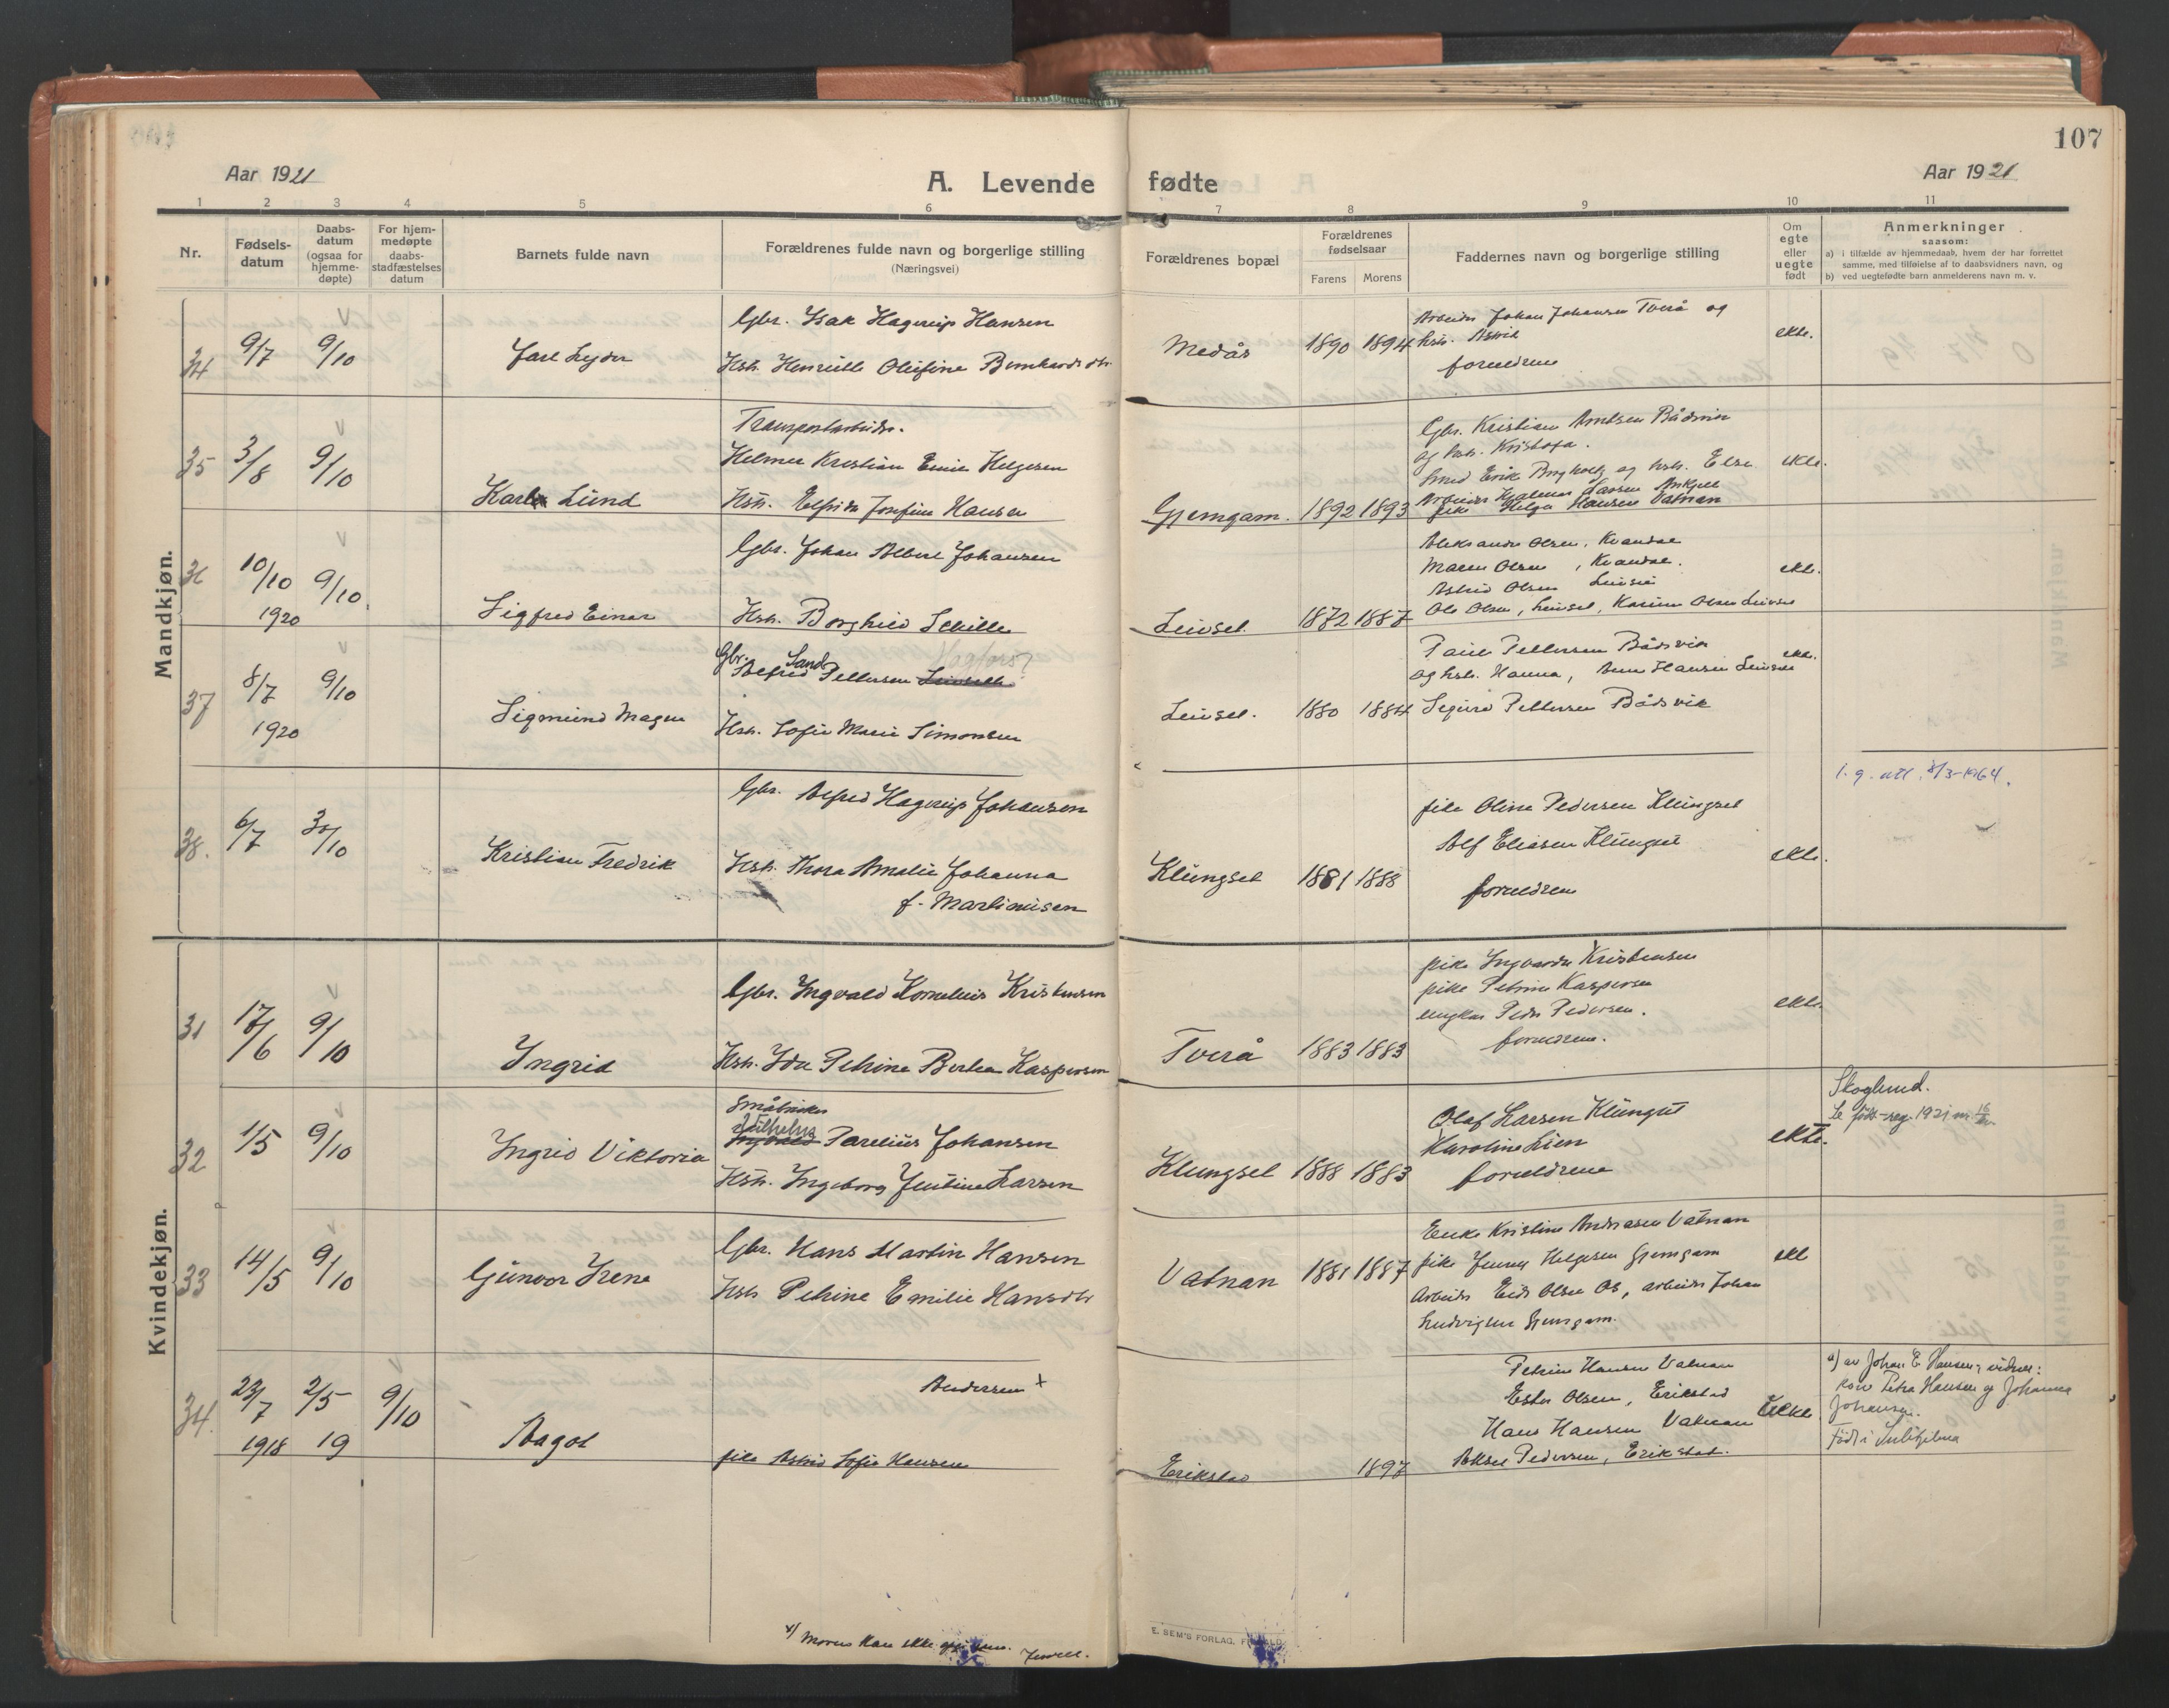 107
Aar 1921
A. Levende fødte
Aar 1921
1 2 3 4 5 6 7 8 9 10 11
Nr.
Fødsels-
datum
Daabs-
datum
(ogsaa for
hjemme-
døpte)
For hjem-
medøpte
daabs-
stadfæstelses
datum
Barnets fulde navn
Forældrenes fulde navn og borgerlige stilling
(Næringsvei)
Forældrenes bopæl
Forældrenes
fødselsaar
Farens Morens
Faddernes navn og borgerlige stilling
Om
egte
eller
uegte
født
Anmerkninger
saasom:
a) i tilfælde av hjemmedaab, hvem der har forrettet
samme, med tilføielse af to daabsvidners navn, og
b) ved uegtefødte barn anmelderens navn m. v.
Mandkjøn.
34 9/7 9/10 Jarl
Gbr. Isak Hagerup Hansen
Hstr. Olufine
Medås 1890 1894
Arbeider Johan Johansen Tverå og
hstr.
forældrene
ekte.
35 3/8 9/10 Karl Lund
Transportarbeider.
Helmer Kristian Emil Helgesen
Hstr. Elfrida Josefine Hansen
Gjemgam. 1892 1893
Gbr. Kristian Arntsen Bådsvik
og hstr.
Smed Erik Borgholtz og hstr. Else
Arbeider Hjalmar Larsen
pike Helga Hansen Vatnan
ekte.
36 10/10 1920 9/10 Sigfred Einar
Gbr. Johan Albert Johansen
Hstr. Borghild
Leivset 1872 1887
Aleksander Olsen, Kvandal
Maren Olsen, Kvandal.
Astrid Olsen Leivset
Ole Olsen, Leivset, Karine Olsen Leivset
ekte.
37 8/7 1920 9/10 Sigmund Magne
Gbr. Sand Vagfors?
Alfred Pettersen Leivseth
Hstr. Sofie Marie Simonsen
Leivset. 1880 1884
Paul Pettersen Bådsvik
og hstr. Hanna, Hansen Leivset
Sigurd Pettersen Bådsvik
ekte.
38. 6/7 30/10 Kristian Fredrik
Gbr. Alfred Hagerup Johansen
Hstr. Thora Amalie Johanna
f. Martinusen
Klungset 1881 1888
pike Oline Pedersen Klungset
Alf Eliasen Klungset
forældrene
ekte.
1. g. att. 8/3-1964.
Kvindekjøn.
31 17/6 9/10 Ingrid
Gbr. Ingvald Kornelius Kristensen
Hstr. Ida Petrine Berthea Kaspersen
Tverå 1883 1883
pike Ingvarda Kristensen
pike Petrine Kaspersen
ungkar Peder Pedersen.
forældrene.
ekte.
32 1/5 9/10 Ingrid Viktoria
Småbruker
Vilhelm
Ingvald Parelius Johansen
Hstr. Ingeborg Justine Larsen
Klungset 1888 1883
Olaf Larsen Klungset
Karoline Lien
forældrene
ekte.
Skoglund.
Se føds-reg. 1921 nr.
33 14/5 9/10 Gunvor Irene
Gbr. Hans Martin Hansen
Hstr Petrine Emilie Hansdtr
Vatnan 1881 1887
Enke Kristine Andreasen Vatnan
pike Jenny Helgesen Gjemgam
Arbeider Olsen Os, arbeider Johan
Ludvigsen Gjemgam.
ekte
34. 23/7 1918 2/5 19 9/10 Aagot
Andersen x
pike Astrid Sofie Hansen
Erikstad 1897
Petrine Hansen Vatnan
Ester Olsen, Erikstad
Hans Hansen Vatnan
Aksel Pedersen, Erikstad.
Uekte
a) av Johan E. Hansen, vidner:
kone Petra Hansen og Johanna
Johansen.
Født i Sulitjelma
x) Moren kan ikke opgi
E. SEM'S FORLAG, F